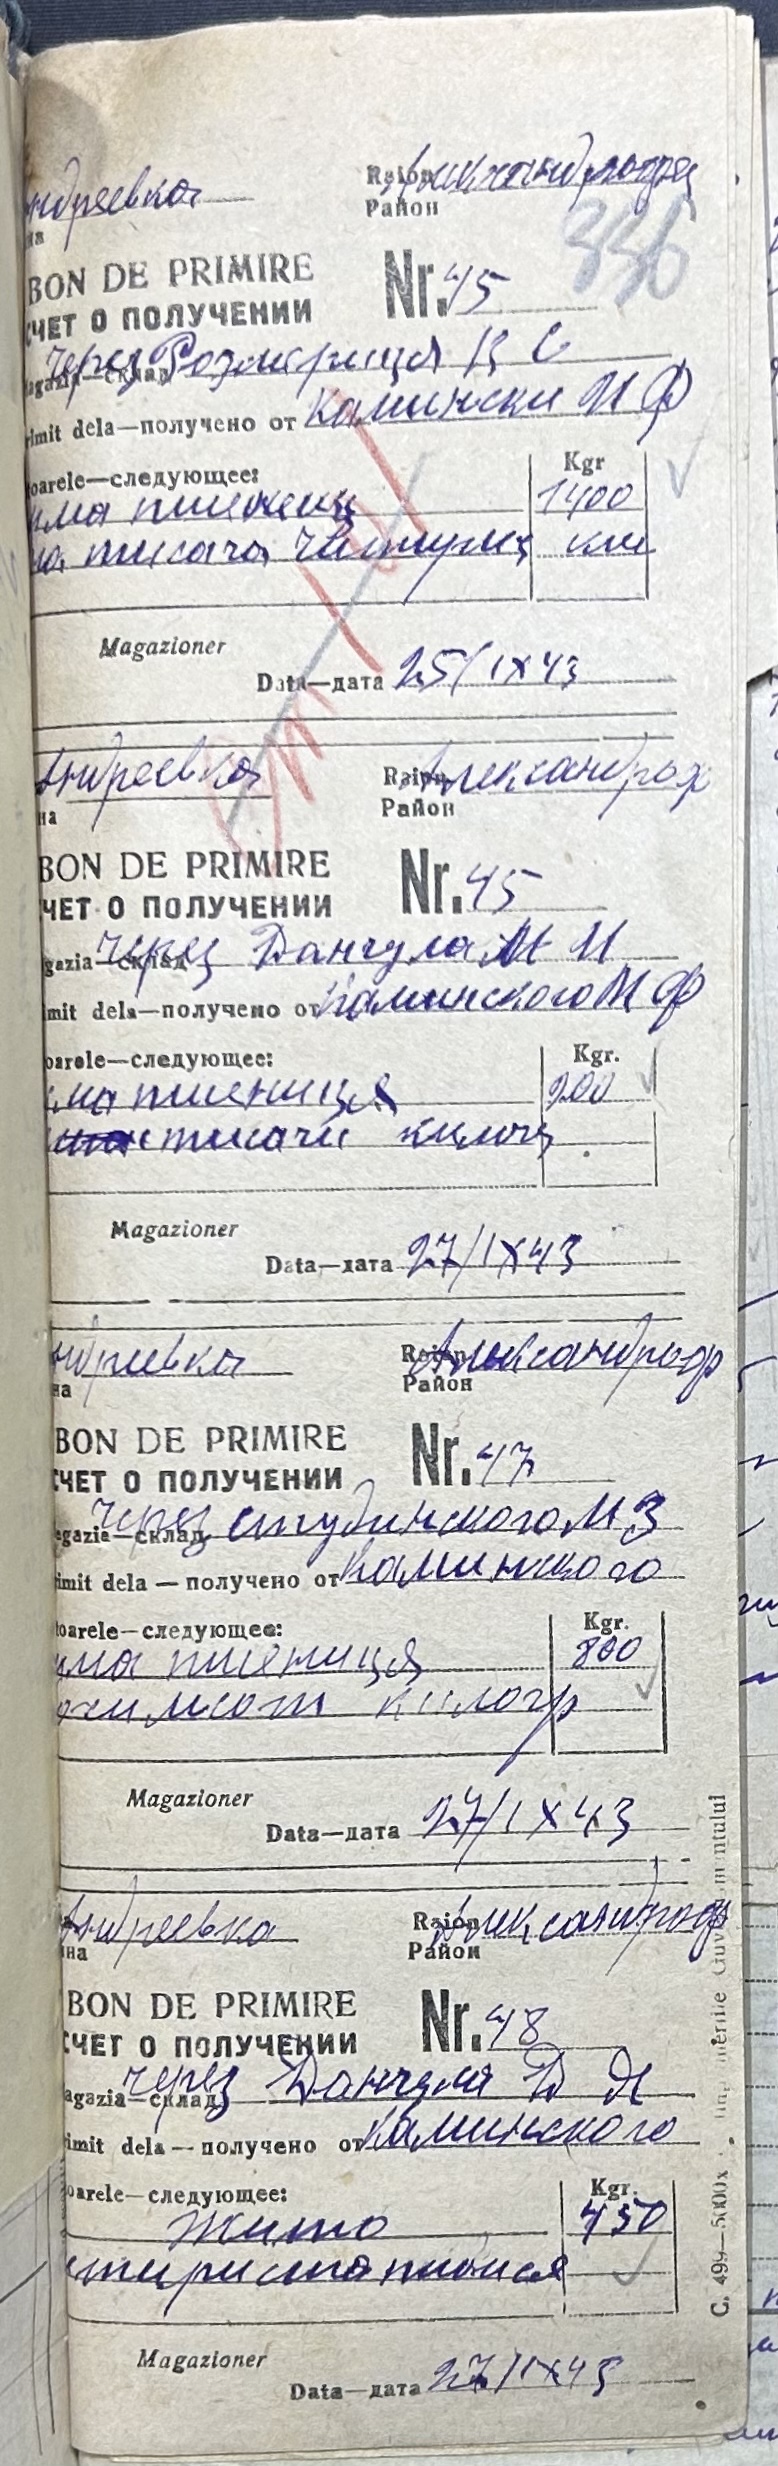 ндреевка Raion Александродар
на Район
336
BON DE PRIMIRE Nr. 45
СЧЕТ О ПОЛУЧЕНИИ
agazia—склад через Розмерица В С
rimit dela—получено от Камински И Ф
toarele—следующее: Kgr
има пшеници 1400
на тисача четирис кил
Magazioner
Data—дата 25/IX 43
Андреевка Raion Александр
на Район
BON DE PRIMIRE Nr. 45
ЧЕТ О ПОЛУЧЕНИИ
gazia—склад через Данчула М И
imit dela—получено от Каминского И Ф
oarele—следующее: Kgr.
има пшениця 200
тисачи килогр
Magazioner
Data—дата 27/IX 43
ндреевка Raion Александродр
на Район
BON DE PRIMIRE Nr. 47
СЧЕТ О ПОЛУЧЕНИИ
agazia—склад через Студинского М З
rimit dela — получено от Каминского
toarele—следующее: Kgr.
има пшениця 800
охимсот килогр
Magazioner
Data—дата 27/IX 43
Андреевка Raion Александродр
на Район
BON DE PRIMIRE Nr. 48
СЧЕТ О ПОЛУЧЕНИИ
agazia—склад через Данчула Д Я
rimit dela — получено от Каминского
oarele—следующее: Kgr.
Жито 450
тириста пидися
Magazioner
Data—дата 27/IX 43
C. 499—5000x Imprimeriile Guvernamentului